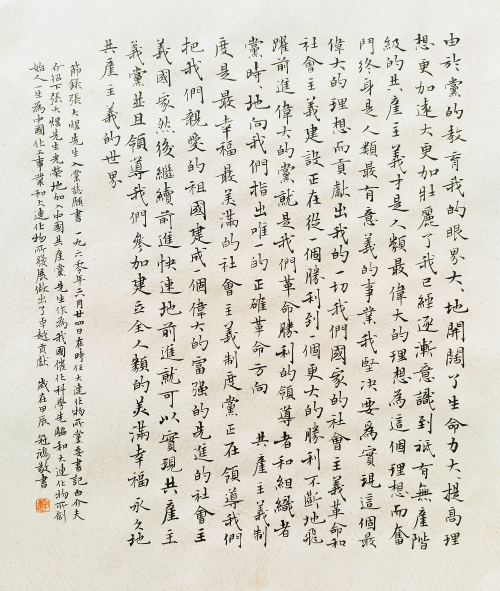 由於黨的教育我的眼界大、地開闊了生命力大提高理
想更加遠大更加壯麗了我已經逐漸意識到祇有無產階
級的共產主義才是人類最偉大的理想為這個理想而奮
鬥終身是人類最有意義的事業我堅決要為實現這個最
偉大的理想而貢獻出我的一切我們國家的社會主義革命和
社會主義建設正在從一個勝利到一個更大的勝利不斷地飛
躍前進偉大的黨就是我們革命勝利的領導者和組織者
黨時、地向我們指出唯一的正確革命方向 共產主義制
度是最幸福最美滿的社會主義制度黨正在領導我們
把我們親愛的祖國建成一個偉大的富强的先進的社會主
義國家然後繼續前進快速地前進就可以實現共產主
義黨並且領導我們參加建立全人類的美滿幸福永久地
共產主義的世界
節錄張大煜先生入黨誌願書 一九六零年二月廿四日在時任大連化物所黨委書記白介夫
介紹下張大煜先生光榮地加入中國共產黨先生作為我國催化科學先驅和大連化物所創
始人一生為中國化工事業和大連化物所發展做出了卓越貢獻 歲在甲辰 鴻敬書